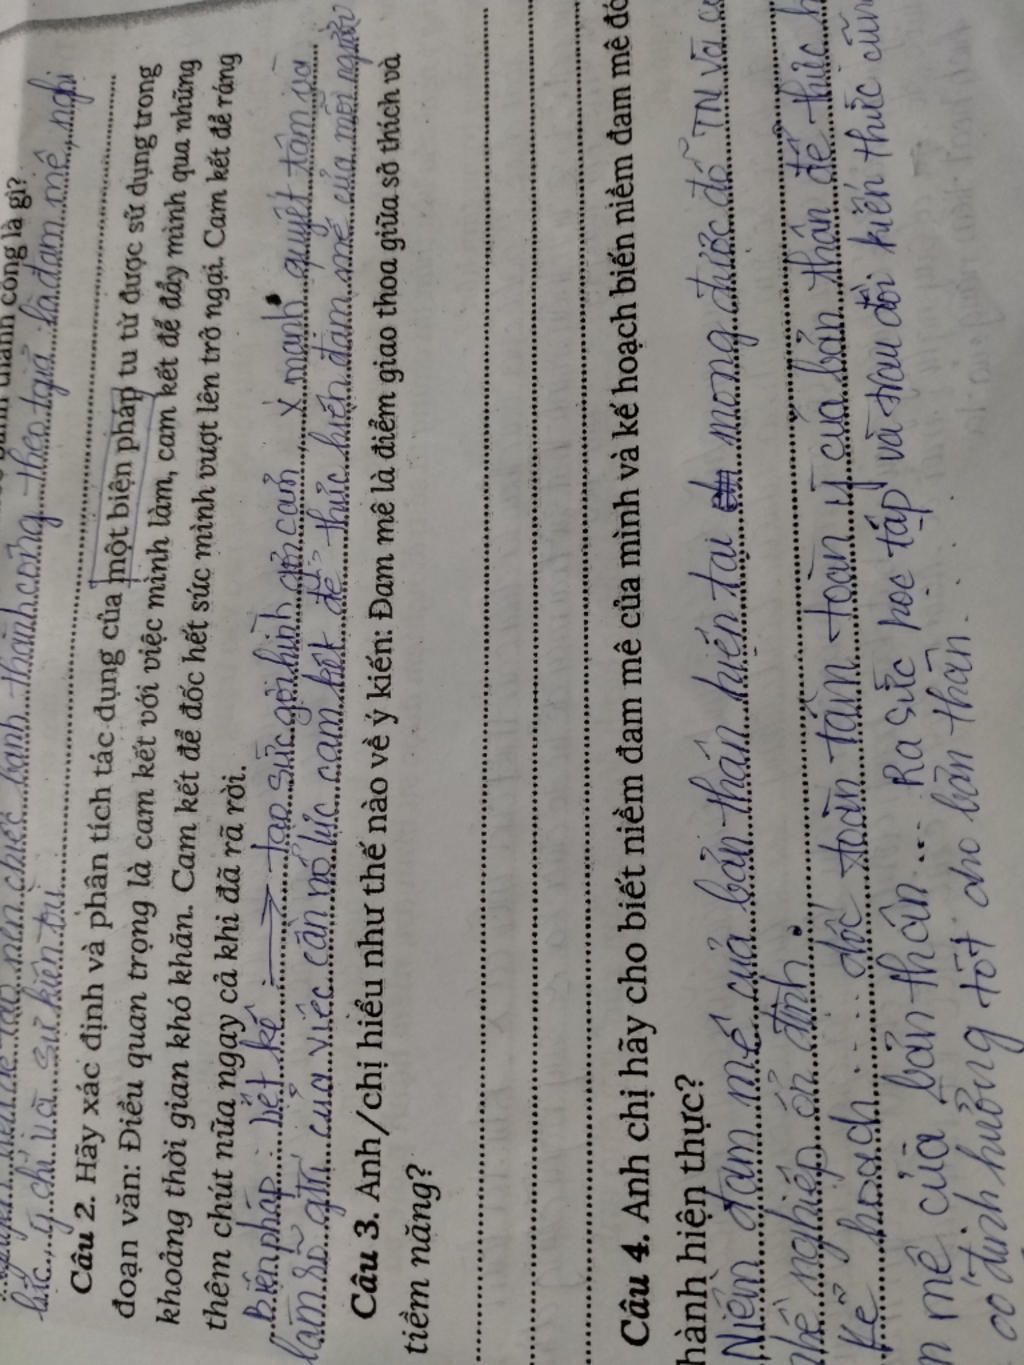 thành công là gì?
tạo nên chiếc bánh thành công theo tgiả là đam mê, nghị
lực, ý chí và sự kiên trì
Câu 2. Hãy xác định và phân tích tác dụng của một biện pháp tu từ được sử dụng trong
đoạn văn: Điều quan trọng là cam kết với việc mình làm, cam kết để đẩy mình qua những
khoảng thời gian khó khăn. Cam kết để dốc hết sức mình vượt lên trở ngại. Cam kết để ráng
thêm chút nữa ngay cả khi đã rã rời.
Biện pháp: liệt kê → tạo sức gợi hình gợi cảm, x mạnh quyết tâm và
làm sõ gtrị của việc cần nổ lực cam kết để thực hiện đam mê của mỗi người
Câu 3. Anh/chị hiểu như thế nào về ý kiến: Đam mê là điểm giao thoa giữa sở thích và
tiềm năng?
Câu 4. Anh chị hãy cho biết niềm đam mê của mình và kế hoạch biến niềm đam mê đó
hành hiện thực?
Niềm đam mê của bản thân hiện tại mong được đỗ TN và
nghề nghiệp ổn định.
Kế hoạch... dốc toàn tâm toàn ý của bản thân để thực h
m mê của bản thân... Ra sức học tập và trau dồi kiến thức cũn
có định hướng tốt cho bản thân.